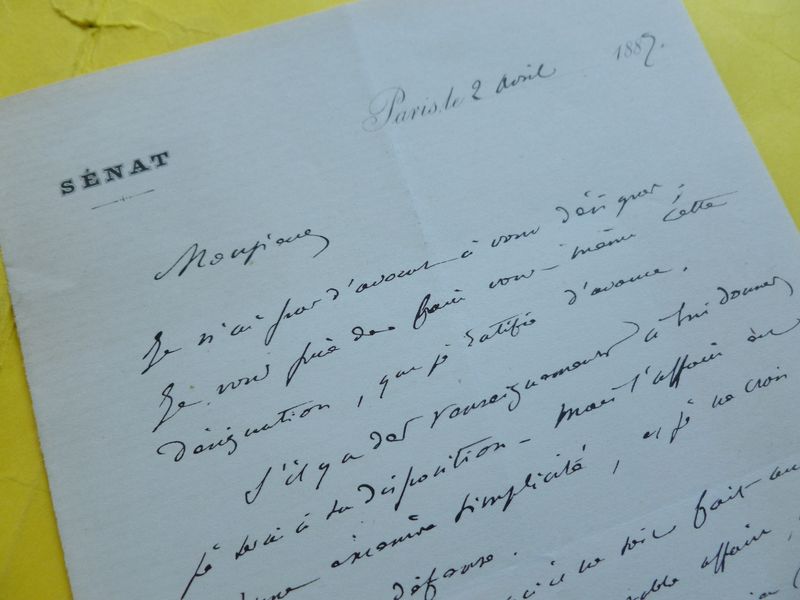 SÉNAT
Paris, le 2 avril 1887.
Monsieur
Je n'ai pas d'avocat à vous désigner.
Je vous prie de faire vous-même cette
désignation, que je ratifie d'avance.
S'il y a des renseignements à lui donner
je serai à sa disposition - mais l'affaire est
d'une extrême simplicité, et je ne crois
défense.
ne soit fait au
affaire,